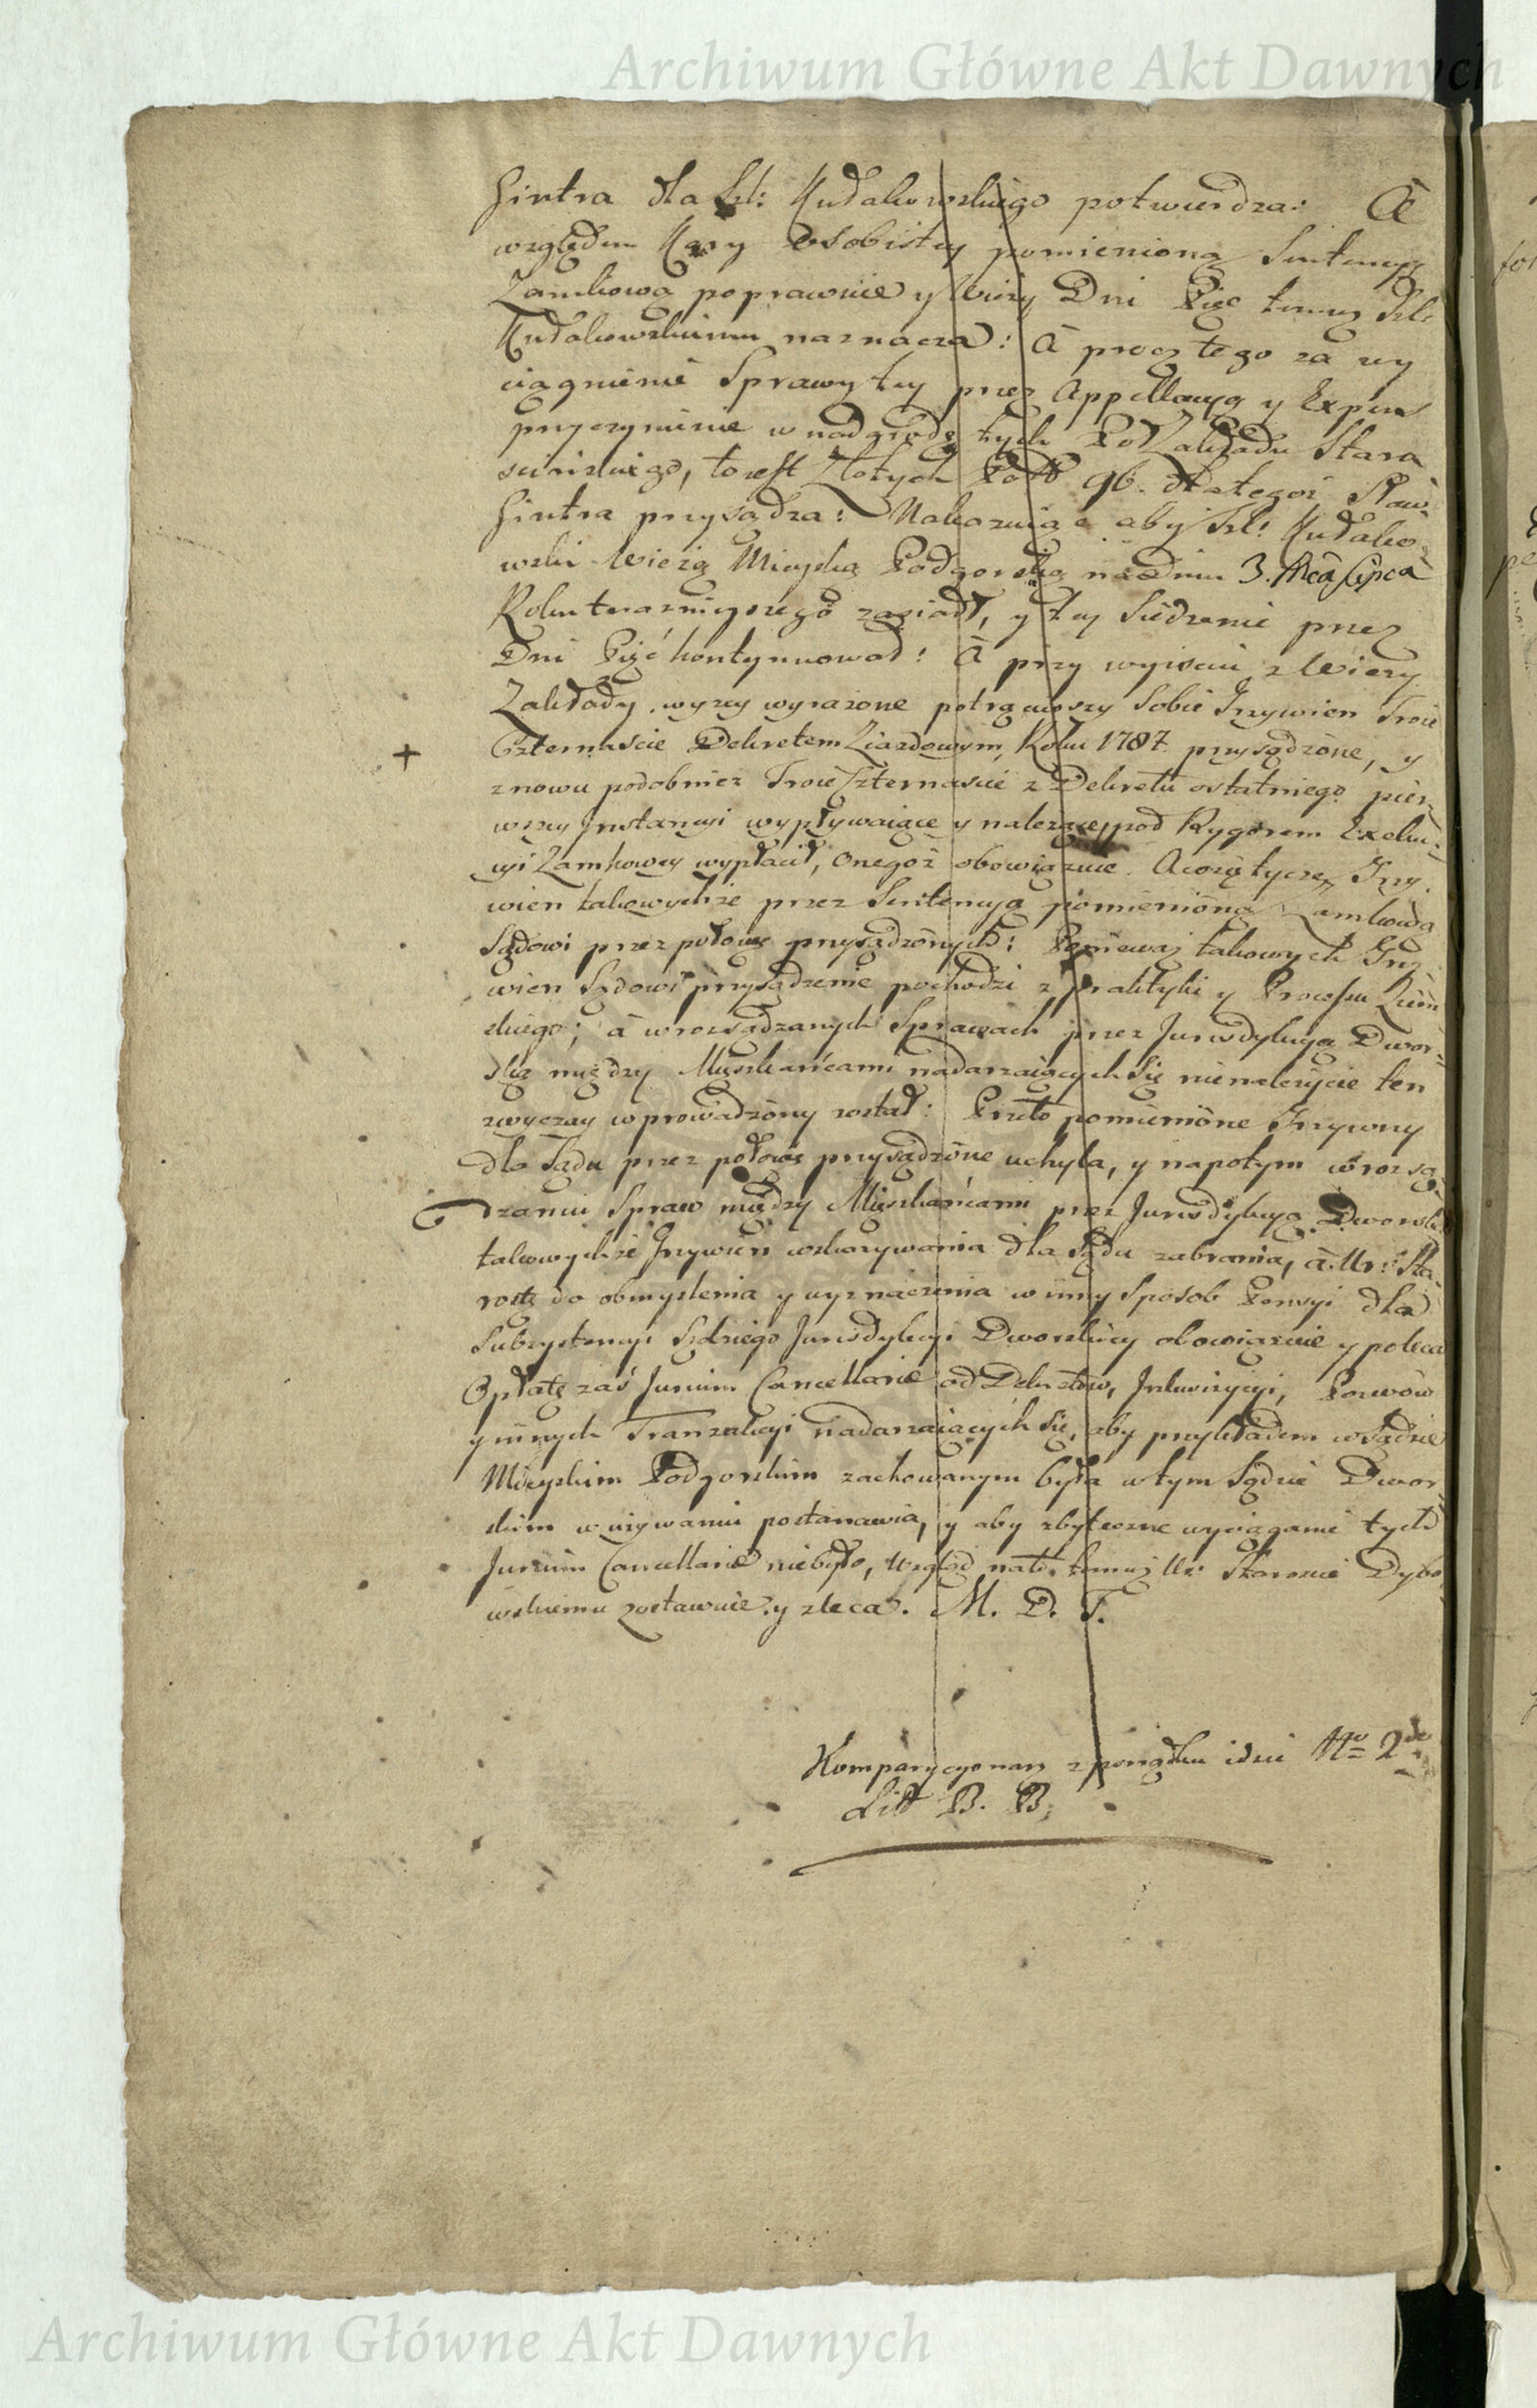 Archiwum Główne Akt Dawnych
Gintra dla Szl: Kudakowskiego potwierdza: A
względem Kary Osobistey pomienioną Sentencyą
Zamkową poprawuie y Wieży Dni Pięc temuż Szl:
Kudakowskiemu naznacza: A procz tego za wy
ciągnienie Sprawy tey przez Appellacyą y Expens
przyczynienie w nadgrodę tych Poł Zakładu Stara
scinskiego, to iest Złotych Poll 96. dla tegoż Sław:
Gintra przysądza: Nakazuiąc aby Szl: Kudako-
wski Wieżą Mieyską Podgorską na Dniu 3. Mca Lipca
Roku teraznieyszego zasiadł, y tey siedzenie przez
Dni Pięć kontynuował: A przy wyisciu z Wieży
Zakłady wyzey wyrażone potrąciwszy sobie Grzywien Troie
+ Czternascie Dekretem Ziazdowym, Roku 1787. przysądzone, y
znowu podobnież Troie Czternascie z Dekretu ostatniego pier-
wszey Instancyi wypływaiące y należące, pod Rygorem Exeku-
cyi Zamkowey wypłacił, onegoż obowiązuie. A co się tycze Grzy-
wien takowychże przez Sentencyą pomienioną Zamkową
Sądowi przez połowę przysądzonych: Ponieważ takowych Grzy-
wien Sądowi przysądzenie pochodzi z praktyki y Processu Ziem-
skiego; à w rozsądzanych Sprawach przez Jurisdykcyą Dwor-
ską między Mieszkańcami nadarzaiących się nienależycie ten
zwyczay wprowadzony został: Przeto pomienione Grzywny
dla Sądu przez połowę przysądzone uchyla, y napotym w rozsą-
dzaniu Spraw między Mieszkańcami przez Jurisdykcyą Dworską
takowychże Grzywien wskazywania dla Sądu zabrania, à Ur: Sta-
rostę do obmyslenia y wyznaczenia w inny Sposob Pensyi dla
Subsystencyi Sędziego Jurisdykcyi Dworskiey obowiązuie y poleca
Opłatę zaś Jurium Cancellariae od Dekretow, Inkwizycyi, Pozwow
y innych Tranzakcyi nadarzaiących się, aby przykładem w Sądzie
Mieyskim Podgorskim zachowanym była w tym Sądzie Dwor-
skim w używaniu postanawia, y aby zbyteczne wyciąganie tych
Jurium Cancellariae niebyło, wzgląd na to temuż Ur: Staroscie Dybo-
wskiemu zostawuie y zleca. M. D. T.
Komparycyonarz z porządku idzie Nro 2do
Litt B. B.
Archiwum Główne Akt Dawnych